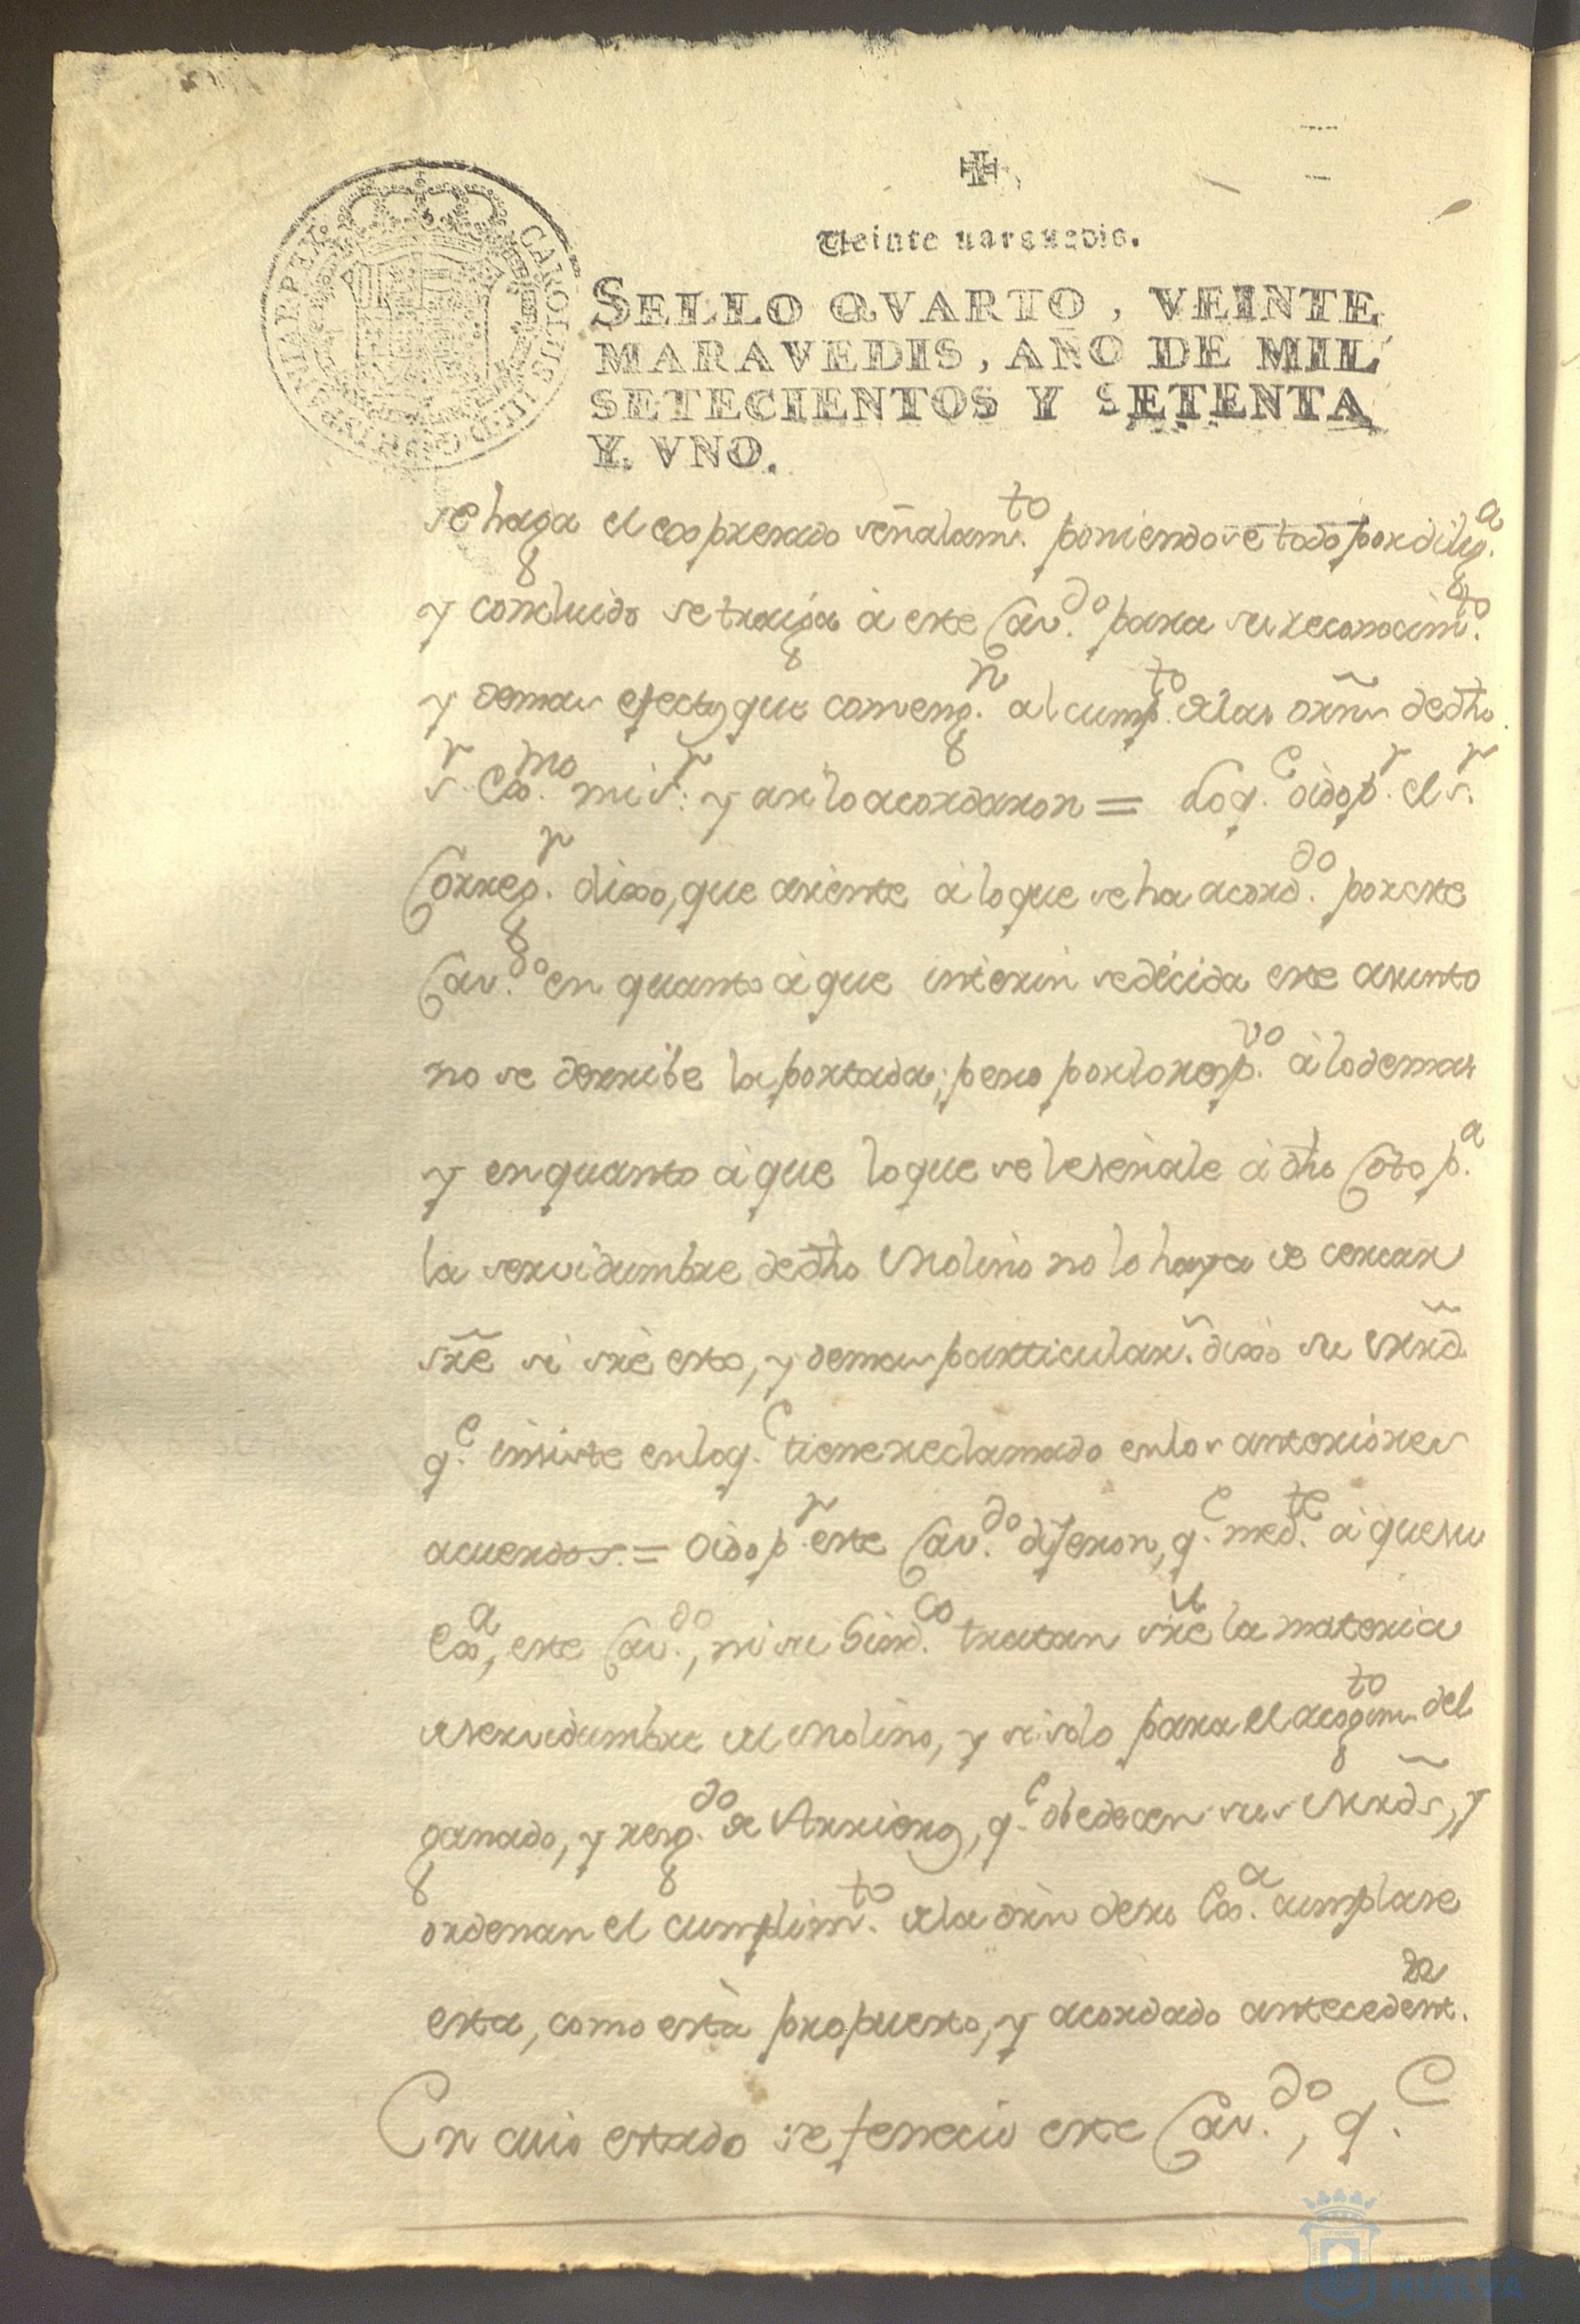 CAROLUS III D G HISPANIAR REX
✠
Veinte maravedis.
SELLO QVARTO, VEINTE
MARAVEDIS, AÑO DE MIL
SETECIENTOS Y SETENTA
Y VNO.
se haga el expresado señalam.to poniendose todo por dilig.a
y concluido se traiga à este Cav.do para su reconocim.to
y demas efectos que conveng.n al cump.to de las orñs de dho
s.r Exmo. mi s.r: y asi lo acordaron = Lo q.e oido p.r el s.r
Correg.r dixo, que asiente à lo que se ha acord.do por este
Cav.do en quanto à que interin se decida este asunto
no se derribe la portada; pero por lo resp.vo à lo demas
y en quanto à que lo que se le señale à dho Coto p.a
la servidumbre de dho Molino no lo haya de cercar
sre si sre esto, y demas particular.s dixo su Mrd.
q.e insiste en lo q.e tiene reclamado en los anteriores
acuerdos. = Oido p.r este Cav.do dijeron, q.e med.te à que su
Exa, este Cav.do, ni su Sind.co tratan sre la materia
de servidumbre del Molino, y si solo para el acogim.to del
ganado, y resg.do de Arrieros, q.e obedecen sus Mrds, y
ordenan el cumplim.to de la orñ de su Ex.a cumplase
esta, como està propuesto, y acordado antecedent.
En cuio estado se fenecio este Cav.do, q.e
HUELVA